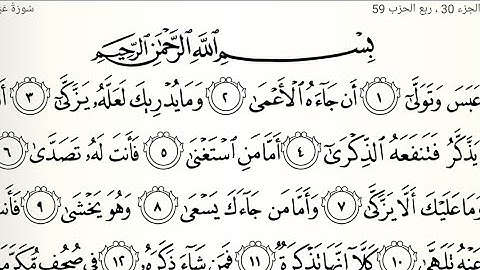 الجزء 30 ، ربع الحزب 59
بِسْمِ ٱللَّهِ ٱلرَّحْمَٰنِ ٱلرَّحِيمِ
عَبَسَ وَتَوَلَّىٰٓ ١ أَن جَآءَهُ ٱلْأَعْمَىٰ ٢ وَمَا يُدْرِيكَ لَعَلَّهُۥ يَزَّكَّىٰٓ ٣
يَذَّكَّرُ فَتَنفَعَهُ ٱلذِّكْرَىٰٓ ٤ أَمَّا مَنِ ٱسْتَغْنَىٰ ٥ فَأَنتَ لَهُۥ تَصَدَّىٰ ٦
وَمَا عَلَيْكَ أَلَّا يَزَّكَّىٰ ٧ وَأَمَّا مَن جَآءَكَ يَسْعَىٰ ٨ وَهُوَ يَخْشَىٰ ٩
عَنْهُ تَلَهَّىٰ ١٠ كَلَّآ إِنَّهَا تَذْكِرَةٌ ١١ فَمَن شَآءَ ذَكَرَهُۥ ١٢ فِى صُحُفٍ